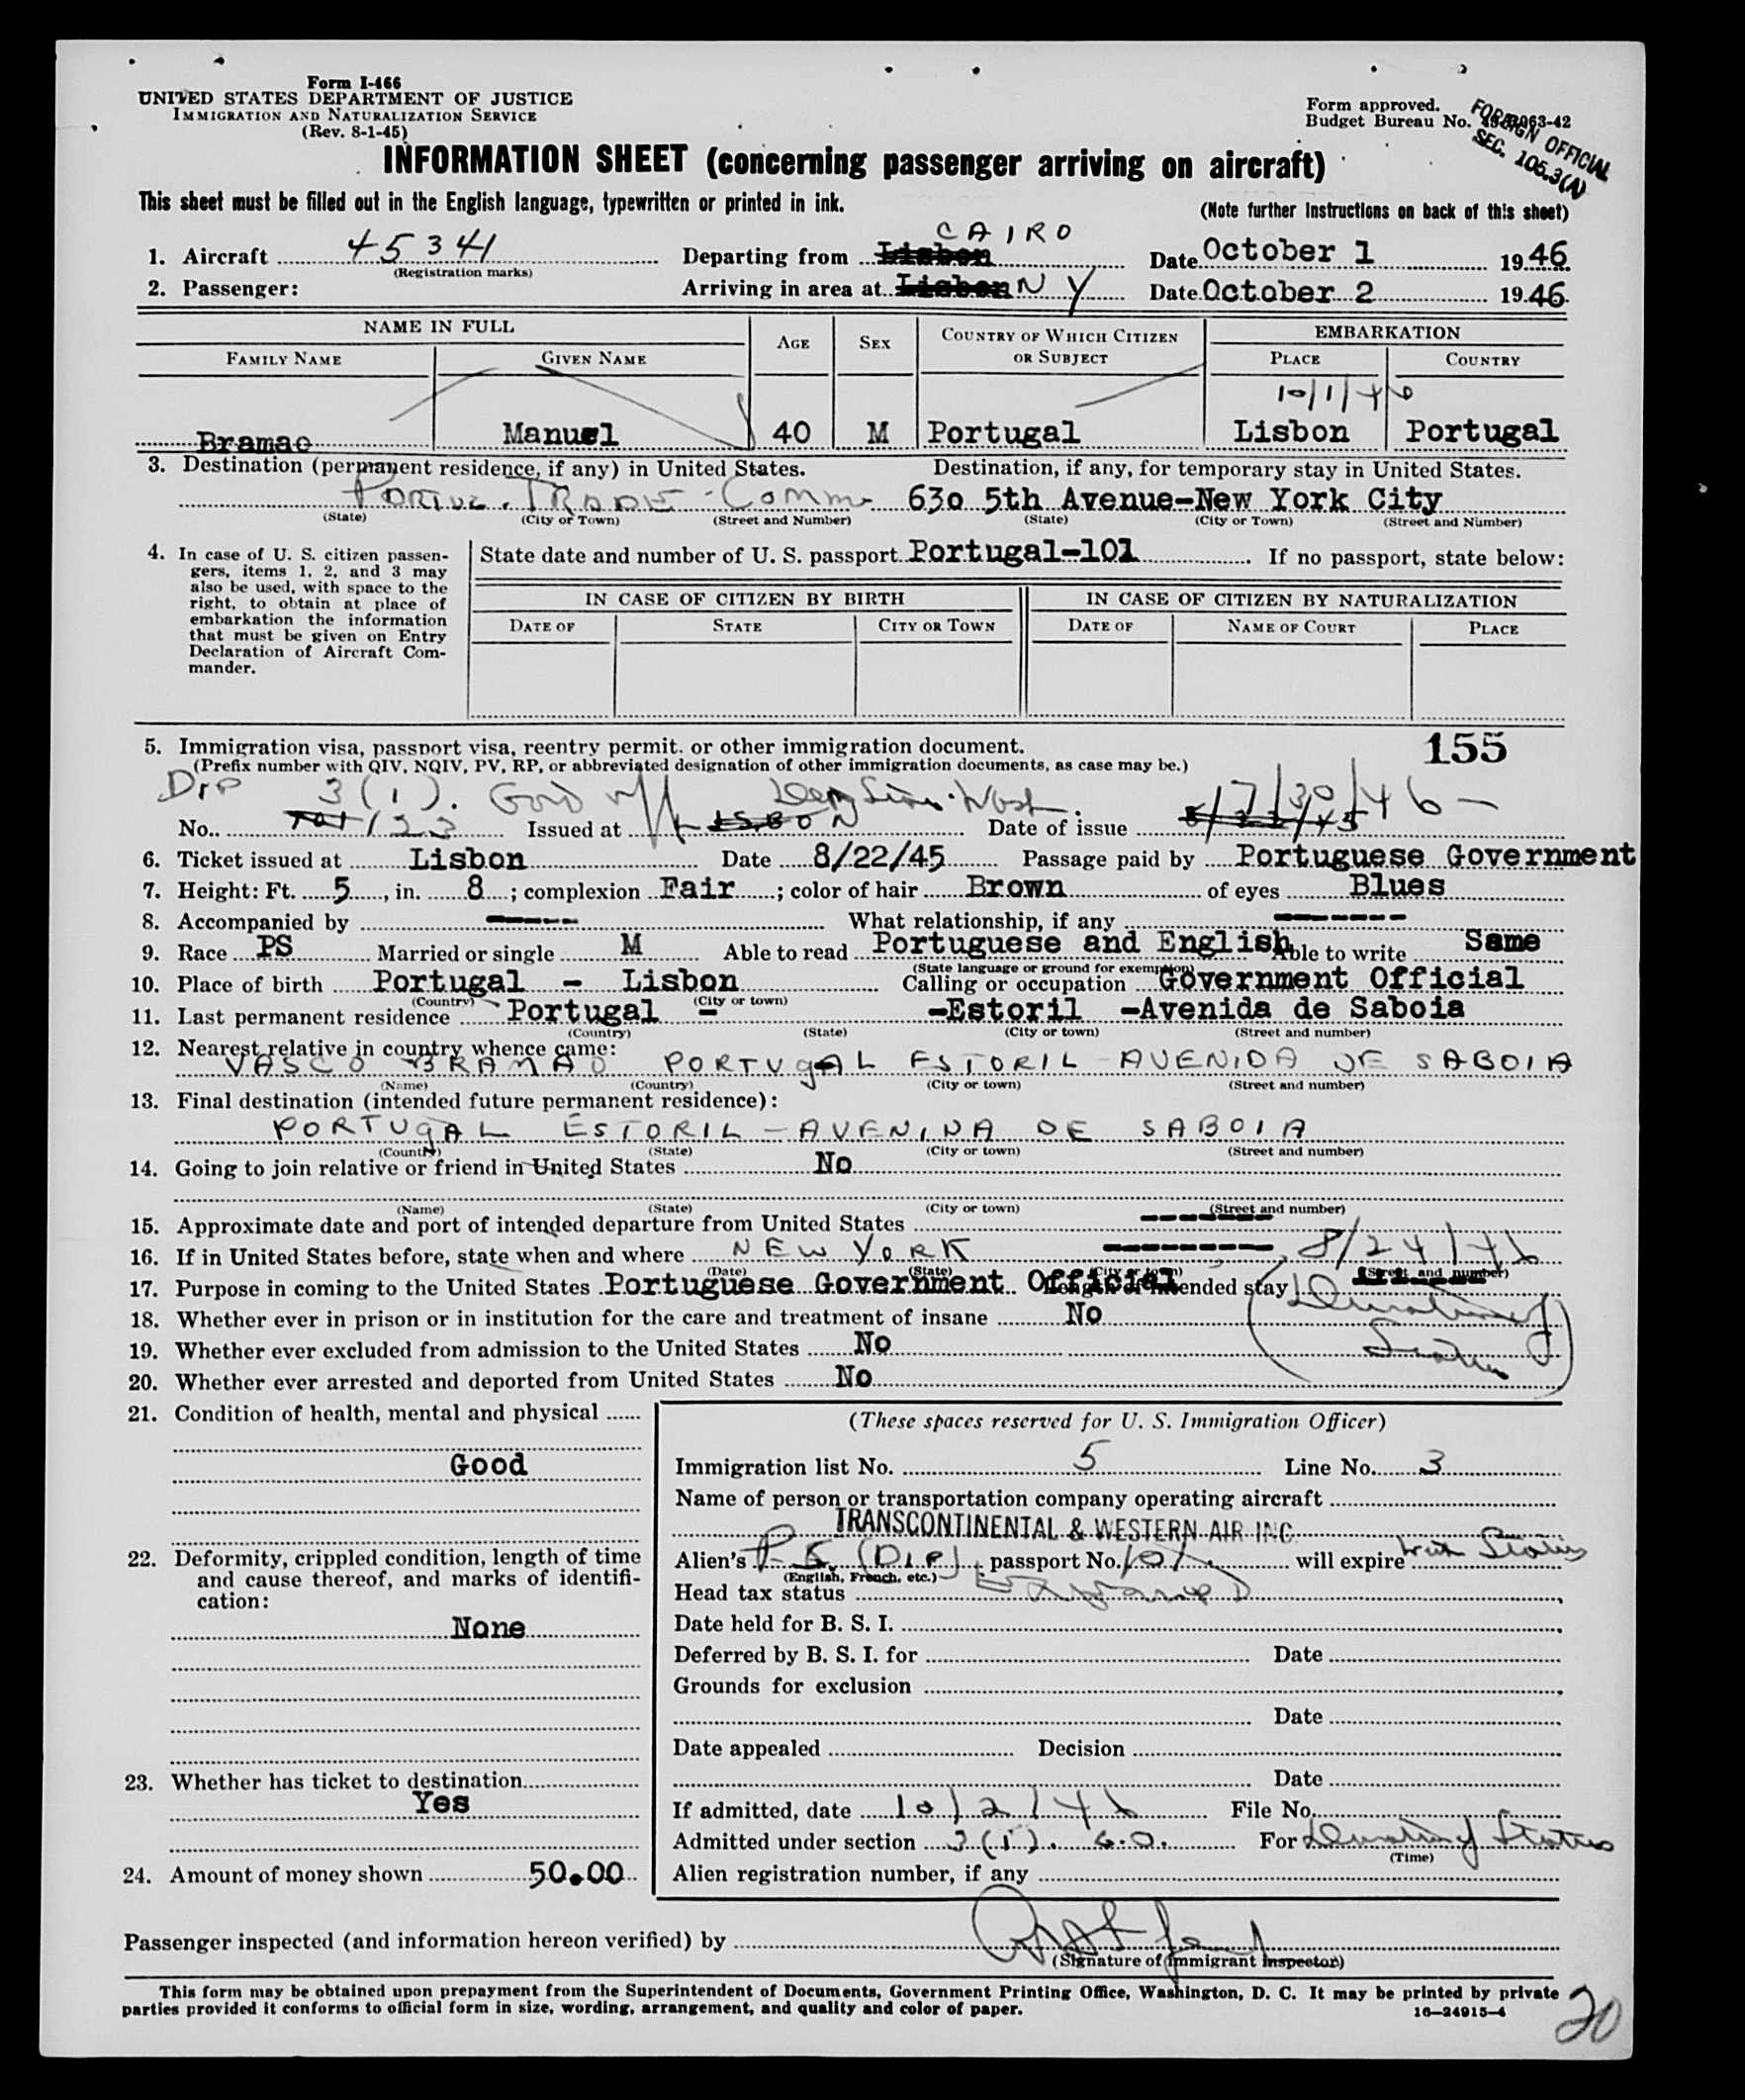 Form I-466
UNITED STATES DEPARTMENT OF JUSTICE
IMMIGRATION AND NATURALIZATION SERVICE
(Rev. 8-1-45)
Form approved.
Budget Bureau No.
FOREIGN OFFICIAL
SEC. 105.3(A)
INFORMATION SHEET (concerning passenger arriving on aircraft)
This sheet must be filled out in the English language, typewritten or printed in ink.
(Note further instructions on back of this sheet)
CAIRO
1. Aircraft 45341 Departing from Lisbon Date October 1 1946
(Registration marks)
2. Passenger: Arriving in area at Lisbon N Y Date October 2 1946.
NAME IN FULL AGE SEX COUNTRY OF WHICH CITIZEN OR SUBJECT EMBARKATION
FAMILY NAME GIVEN NAME PLACE COUNTRY
10/1/46
Bramao Manuel 40 M Portugal Lisbon Portugal
3. Destination (permanent residence, if any) in United States. Destination, if any, for temporary stay in United States.
Portug. Trade Comm 630 5th Avenue-New York City
(State) (City or Town) (Street and Number) (State) (City or Town) (Street and Number)
4. In case of U. S. citizen passengers, items 1, 2, and 3 may also be used, with space to the right, to obtain at place of embarkation the information that must be given on Entry Declaration of Aircraft Commander.
State date and number of U. S. passport Portugal-101 If no passport, state below:
IN CASE OF CITIZEN BY BIRTH IN CASE OF CITIZEN BY NATURALIZATION
DATE OF STATE CITY OR TOWN DATE OF NAME OF COURT PLACE
5. Immigration visa, passport visa, reentry permit, or other immigration document. 155
(Prefix number with QIV, NQIV, PV, RP, or abbreviated designation of other immigration documents, as case may be.)
Dip 3(1). 7/30/46
No. 101 123 Issued at Lisbon Date of issue 8/22/45
6. Ticket issued at Lisbon Date 8/22/45 Passage paid by Portuguese Government
7. Height: Ft. 5, in. 8; complexion Fair; color of hair Brown of eyes Blues
8. Accompanied by ------ What relationship, if any ------
9. Race PS Married or single M Able to read Portuguese and English Able to write Same
(State language or ground for exemption)
10. Place of birth Portugal - Lisbon Calling or occupation Government Official
(Country) (City or town)
11. Last permanent residence Portugal - -Estoril -Avenida de Saboia
(Country) (State) (City or town) (Street and number)
12. Nearest relative in country whence came:
VASCO BRAMAO PORTUgAL ESTORIL - AVENIDA DE SABOIA
(Name) (Country) (City or town) (Street and number)
13. Final destination (intended future permanent residence):
PORTUgAL ESTORIL - AVENINA DE SABOIA
(Country) (State) (City or town) (Street and number)
14. Going to join relative or friend in United States No
(Name) (State) (City or town) (Street and number)
15. Approximate date and port of intended departure from United States ------
16. If in United States before, state when and where NEW YORK ------ 8/24/46
(Date) (State) (City or town) (Street and number)
17. Purpose in coming to the United States Portuguese Government Official Length of intended stay Duration of Status
18. Whether ever in prison or in institution for the care and treatment of insane No
19. Whether ever excluded from admission to the United States No
20. Whether ever arrested and deported from United States No
21. Condition of health, mental and physical
Good
22. Deformity, crippled condition, length of time and cause thereof, and marks of identification:
None
23. Whether has ticket to destination
Yes
24. Amount of money shown 50.00
(These spaces reserved for U. S. Immigration Officer)
Immigration list No. 5 Line No. 3
Name of person or transportation company operating aircraft
TRANSCONTINENTAL & WESTERN AIR INC.
Alien's (Dip) passport No. 101 will expire with Status
(English, French, etc.)
Head tax status
Date held for B. S. I.
Deferred by B. S. I. for Date
Grounds for exclusion
Date
Date appealed Decision
Date
If admitted, date 10/2/46 File No.
Admitted under section 3(1). G.O. For Duration of Status
(Time)
Alien registration number, if any
Passenger inspected (and information hereon verified) by
(Signature of Immigrant Inspector)
This form may be obtained upon prepayment from the Superintendent of Documents, Government Printing Office, Washington, D. C. It may be printed by private
parties provided it conforms to official form in size, wording, arrangement, and quality and color of paper. 16—24915-4
20